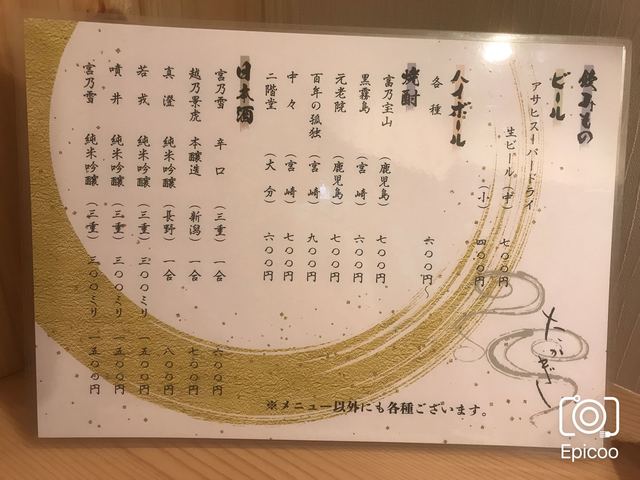 飲みもの
ビール
アサヒスーパードライ
生ビール（中） 七〇〇円
（小） 四〇〇円
ハイボール
各種 六〇〇円〜
焼酎
富乃宝山 （鹿児島） 七〇〇円
黒霧島 （宮崎） 六〇〇円
元老院 （鹿児島） 七〇〇円
百年の孤独 （宮崎） 九〇〇円
中々 （宮崎） 七〇〇円
二階堂 （大分） 六〇〇円
日本酒
宮乃雪 辛口 （三重） 一合 六〇〇円
越乃景虎 本醸造 （新潟） 一合 七〇〇円
真澄 純米吟醸 （長野） 一合 八〇〇円
若戎 純米吟醸 （三重） 三〇〇ミリ 一五〇〇円
噴井 純米吟醸 （三重） 三〇〇ミリ 一五〇〇円
宮乃雪 純米吟醸 （三重） 三〇〇ミリ 一五〇〇円
※メニュー以外にも各種ございます。
Epicoo